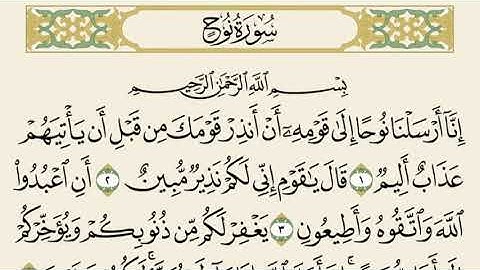 سُورَةُ نُوحٍ
بِسْمِ اللَّهِ الرَّحْمَٰنِ الرَّحِيمِ
إِنَّا أَرْسَلْنَا نُوحًا إِلَىٰ قَوْمِهِ أَنْ أَنذِرْ قَوْمَكَ مِن قَبْلِ أَن يَأْتِيَهُمْ
عَذَابٌ أَلِيمٌ ١ قَالَ يَاقَوْمِ إِنِّي لَكُمْ نَذِيرٌ مُّبِينٌ ٢ أَنِ اعْبُدُوا
اللَّهَ وَاتَّقُوهُ وَأَطِيعُونِ ٣ يَغْفِرْ لَكُم مِّن ذُنُوبِكُمْ وَيُؤَخِّرْكُمْ